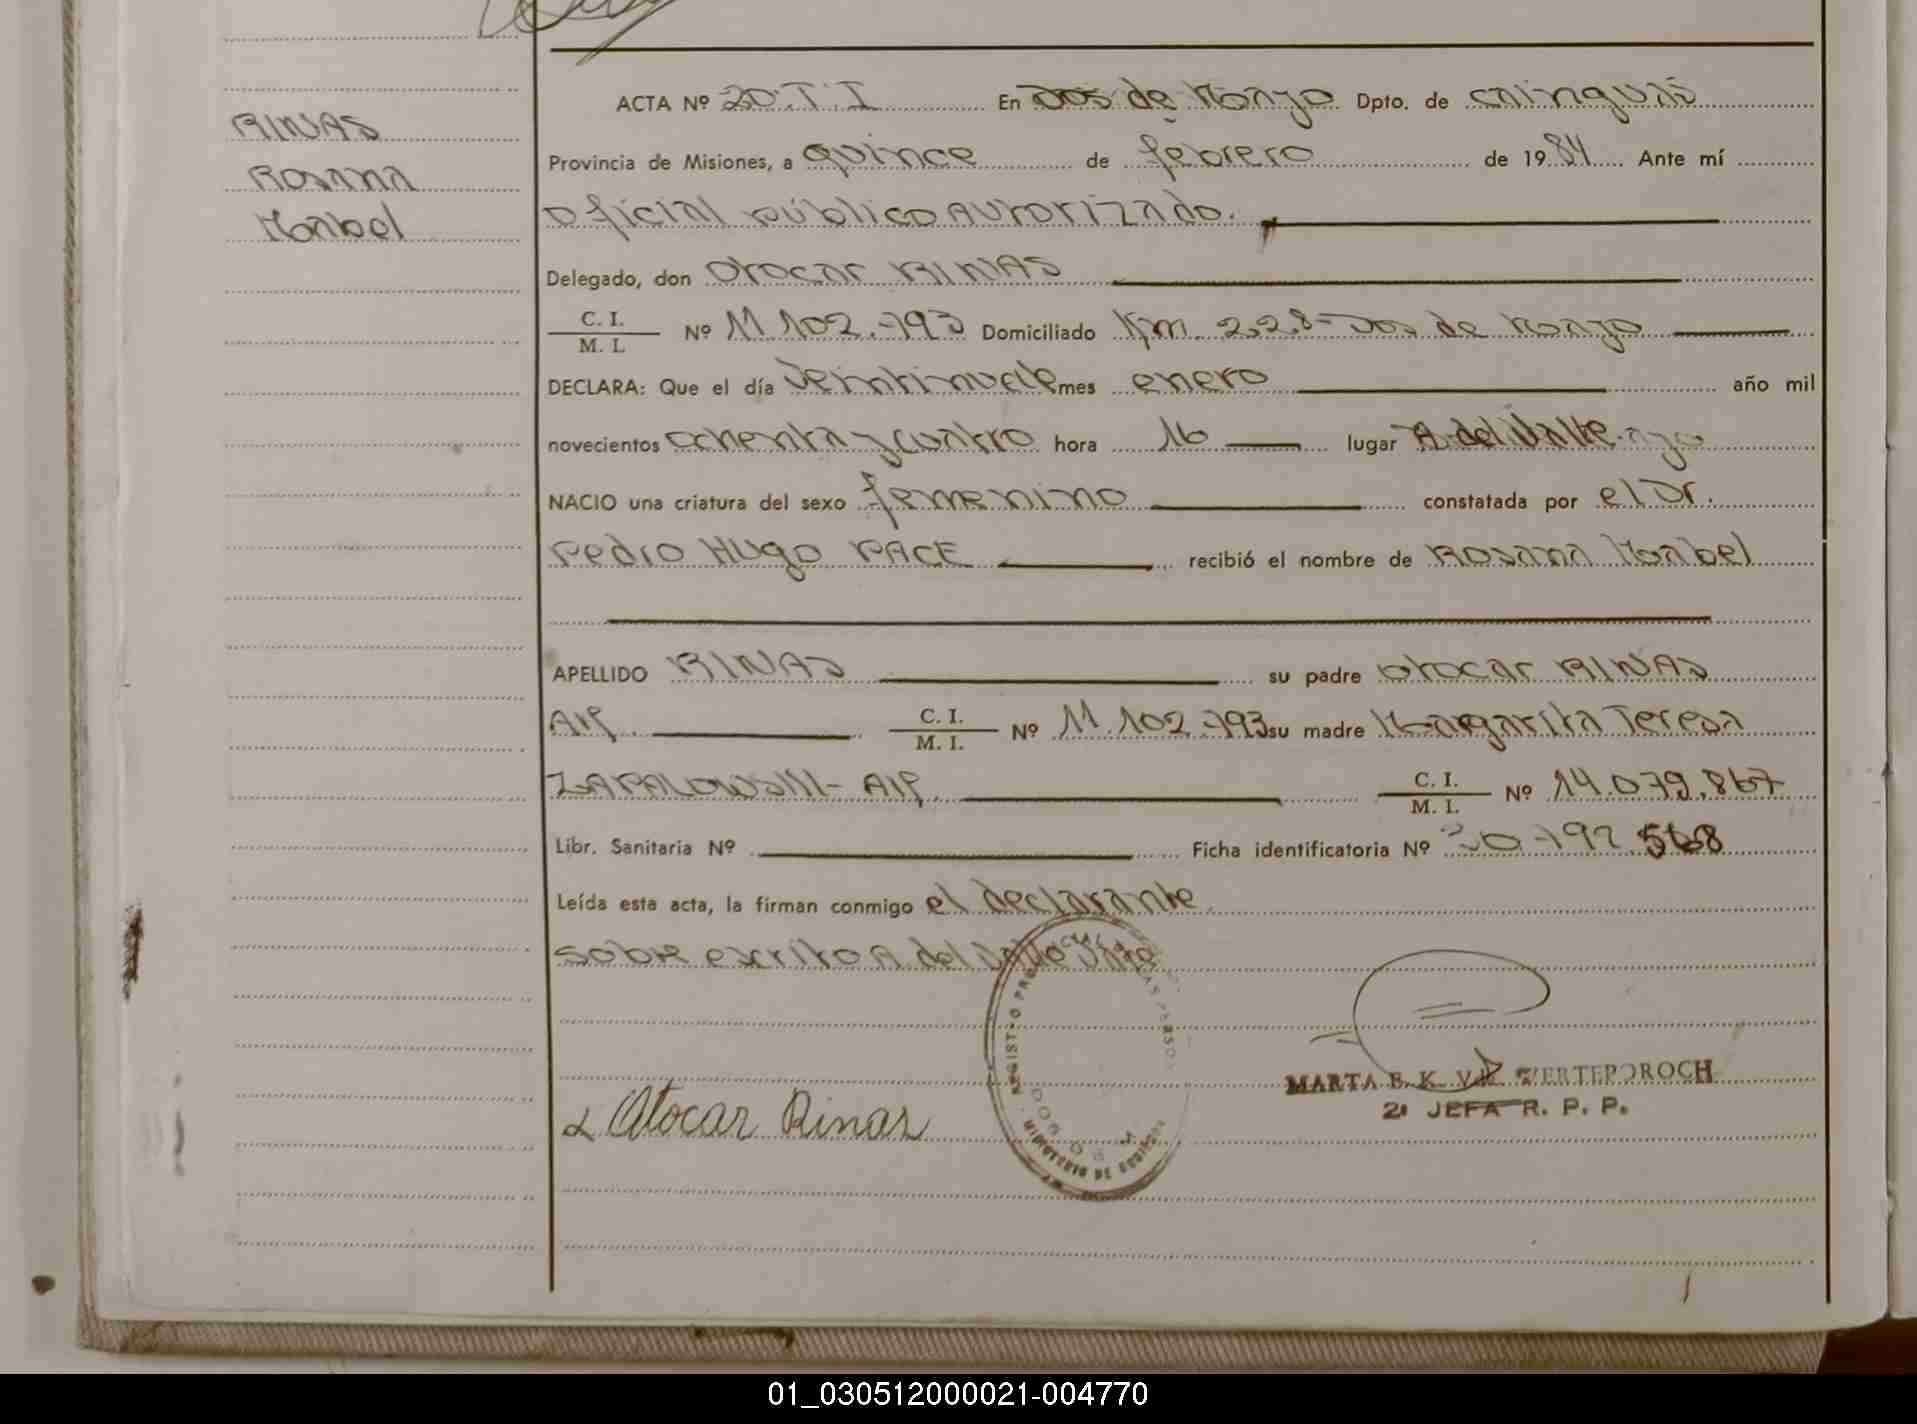 RINAS
Rosana
Mabel
ACTA Nº 20.T.I En Dos de Mayo Dpto. de Cainguás
Provincia de Misiones, a quince de febrero de 1984 Ante mí
oficial público autorizado.
Delegado, don Otocar RINAS
C. I. / M. I. Nº 11.102.793 Domiciliado Km. 228-Dos de Mayo
DECLARA: Que el día veintinueve mes enero año mil
novecientos ochenta y cuatro hora 16 lugar A. del Valle
NACIO una criatura del sexo femenino constatada por el Dr.
Pedro Hugo PACE recibió el nombre de Rosana Mabel
APELLIDO RINAS su padre Otocar RINAS
AIP. C. I. / M. I. Nº 11.102.793 su madre Margarita Teresa
ZAPALOWSKI- AIP. C. I. / M. I. Nº 14.079.867
Libr. Sanitaria Nº Ficha identificatoria Nº 30.792.568
Leída esta acta, la firman conmigo el declarante.
sobre escrito A del Valle Vale
MARTA E. K. VERTEPOROCH
2ª JEFA R. P. P.
Otocar Rinas
01_030512000021-004770